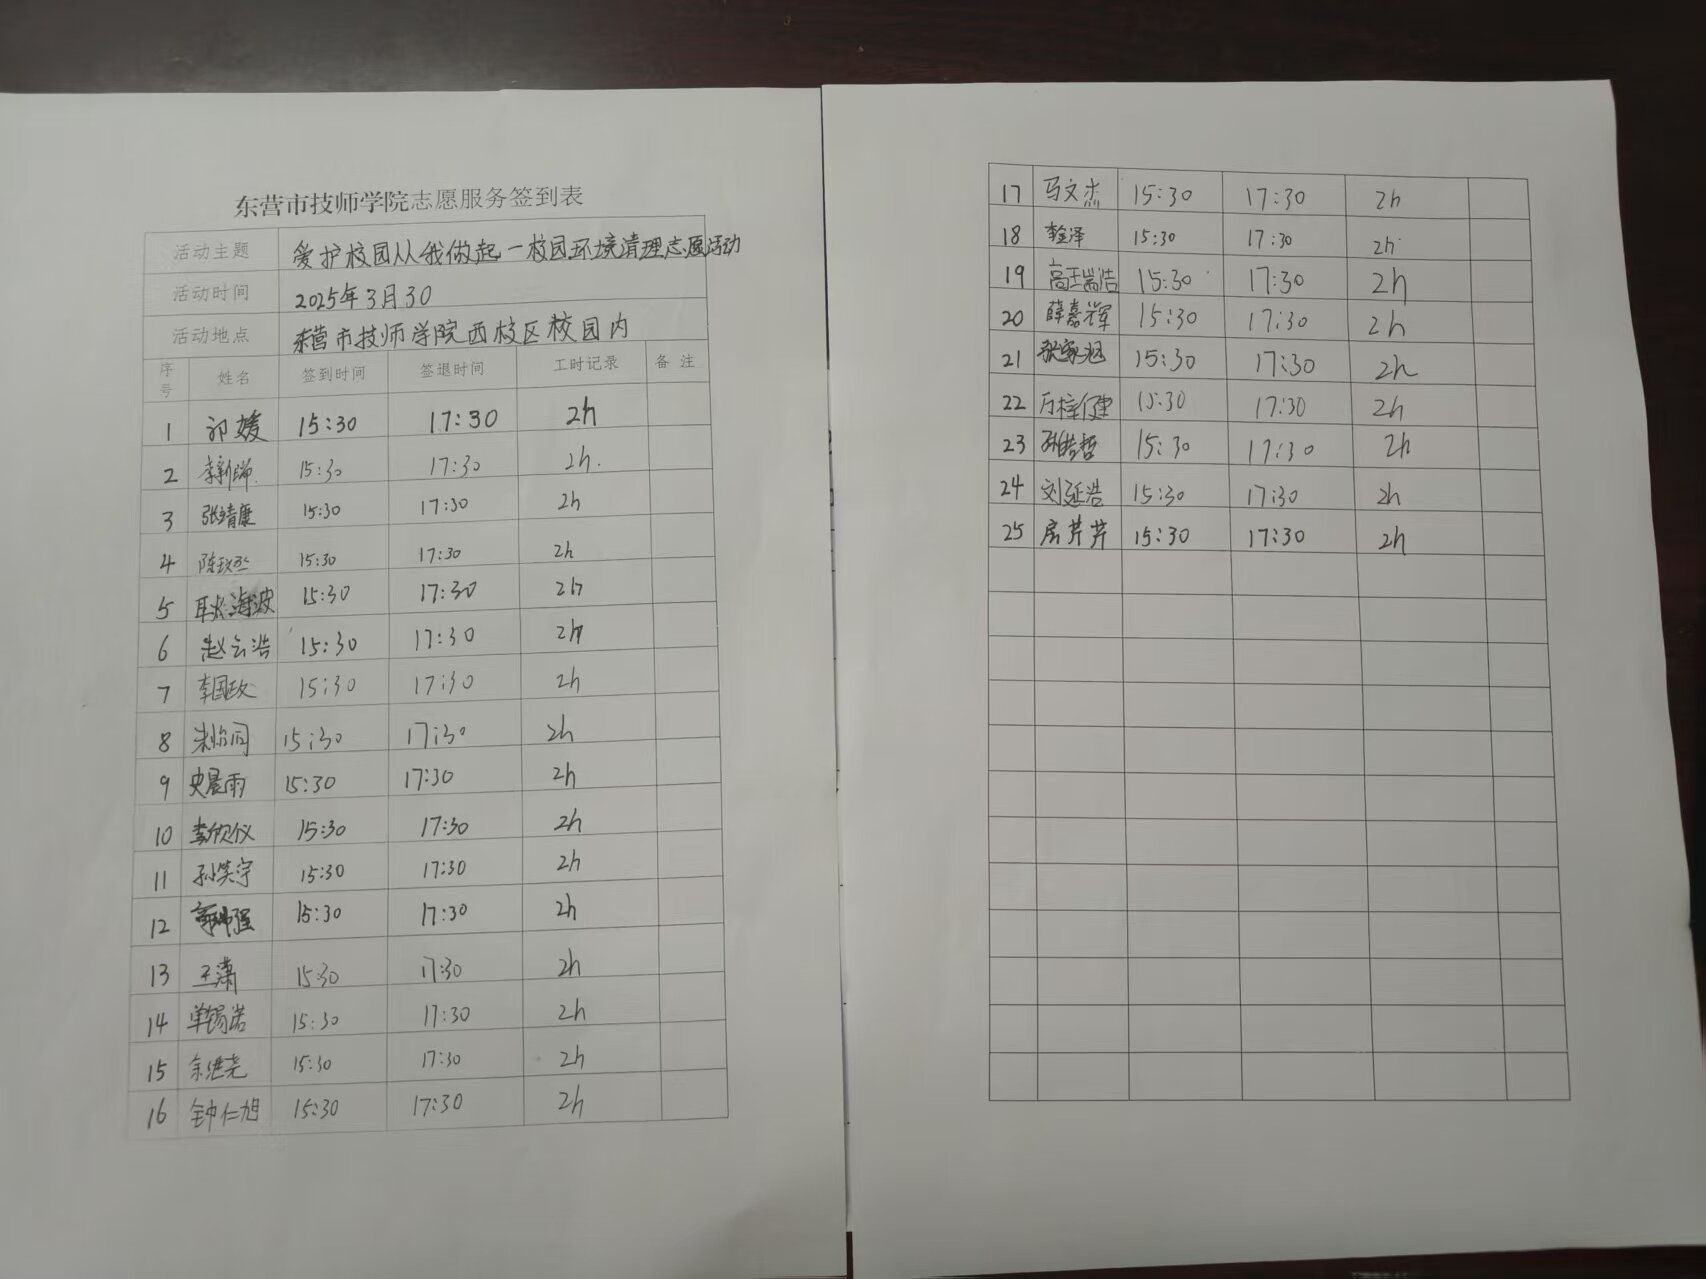 东营市技师学院志愿服务签到表
活动主题 爱护校园从我做起一校园环境清理志愿活动
活动时间 2025年3月30
活动地点 东营市技师学院西校区校园内
序号 姓名 签到时间 签退时间 工时记录 备注
1 媛 15:30 17:30 2h
2 李新瑞 15:30 17:30 2h.
3 张靖康 15:30 17:30 2h
4 陈玟丞 15:30 17:30 2h
5 耿海波 15:30 17:30 2h
6 赵云浩 15:30 17:30 2h
7 李国政 15:30 17:30 2h
8 朱怡同 15:30 17:30 2h
9 史晨雨 15:30 17:30 2h
10 李欣仪 15:30 17:30 2h
11 孙笑宇 15:30 17:30 2h
12 15:30 17:30 2h
13 王潇 15:30 17:30 2h
14 单锡诺 15:30 17:30 2h
15 余继尧 15:30 17:30 2h
16 钟仁旭 15:30 17:30 2h
17 马文杰 15:30 17:30 2h
18 李金泽 15:30 17:30 2h
19 高王瑞浩 15:30 17:30 2h
20 薛嘉辉 15:30 17:30 2h
21 张家旭 15:30 17:30 2h
22 万梓健 15:30 17:30 2h
23 15:30 17:30 2h
24 刘延浩 15:30 17:30 2h
25 房芹芹 15:30 17:30 2h